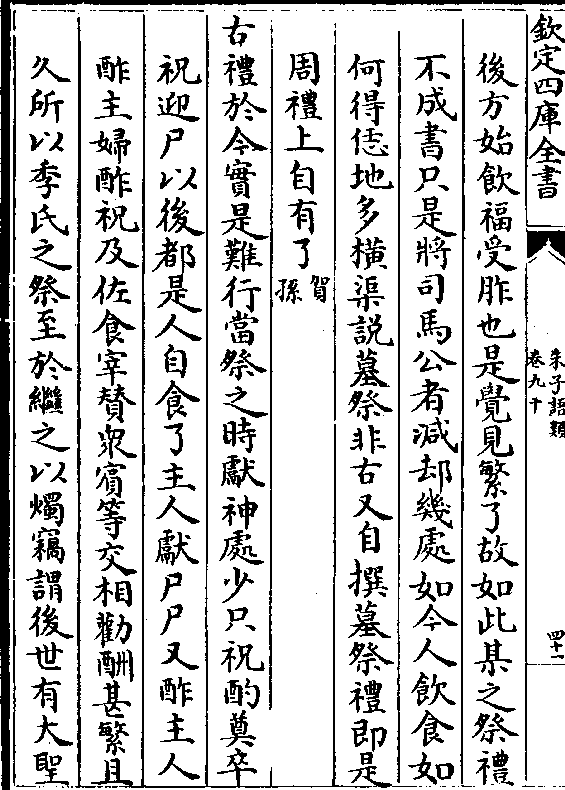 欽定四庫全書
朱子語類
卷九十
四十一
後方始飲福受胙也是覺見繁了故如此某之祭禮
不成書只是將司馬公者減却幾處如今人飲食如
何得恁地多橫渠説墓祭非古又自撰墓祭禮即是
周禮上自有了賀孫
古禮於今實是難行當祭之時獻神處少只祝酌奠卒
祝迎尸以後都是人自食了主人獻尸尸又酢主人
酢主婦酢祝及佐食宰賛衆賓等交相勸酬甚繁且
久所以季氏之祭至於繼之以燭竊謂後世有大聖